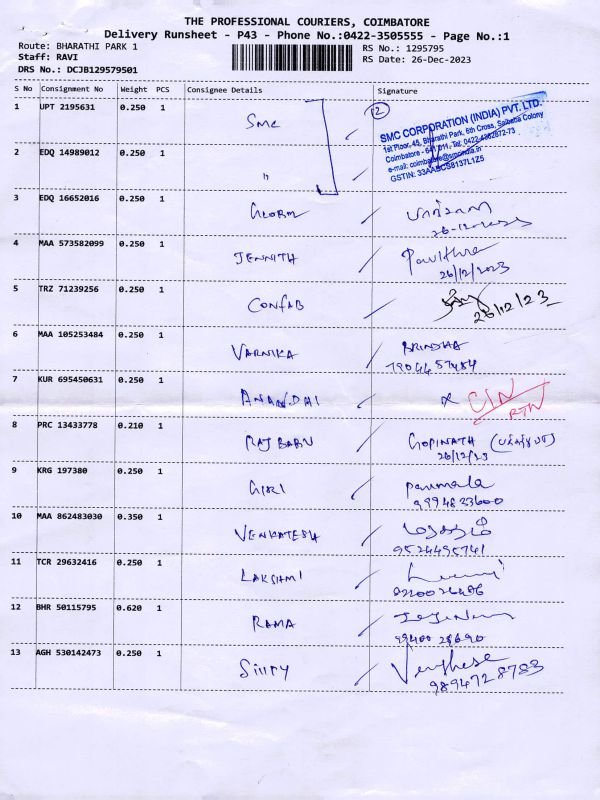 THE PROFESSIONAL COURIERS, COIMBATORE
Delivery Runsheet - P43 - Phone No.:0422-3505555 - Page No.:1
Route: BHARATHI PARK 1
RS No.: 1295795
Staff: RAVI
RS Date: 26-Dec-2023
DRS No.: DCJB129579501
S No Consignment No Weight PCS Consignee Details Signature
1 UPT 2195631 0.250 1 SMC 2
SMC CORPORATION (INDIA) PVT. LTD.
1st Floor, 45, Bharathi Park, 6th Cross, Saibaba Colony
Coimbatore - 641 011, Tel: 0422-4362872-73
e-mail: coimbatore@smcindia.in
GSTIN: 33AABCS8137L1Z5
2 EDQ 14989012 0.250 1 "
3 EDQ 16652016 0.250 1
26-12-2023
4 MAA 573582099 0.250 1 JENNITH Pavithra
26/12/2023
5 TRZ 71239256 0.250 1 CONFAB
26/12/23
6 MAA 105253484 0.250 1 VARNIKA BRINDHA
7904457484
7 KUR 695450631 0.250 1 ANANDHI
RTN
8 PRC 13433778 0.210 1 RAJ BABU GOPINATH
26/12/23
9 KRG 197380 0.250 1 GIRI Parimala
9994833600
10 MAA 862483030 0.350 1 VENKATESH
9524495741
11 TCR 29632416 0.250 1 LAKSHMI
12 BHR 50115795 0.620 1 RAMA
99400 28690
13 AGH 530142473 0.250 1 Verghese
9894728783